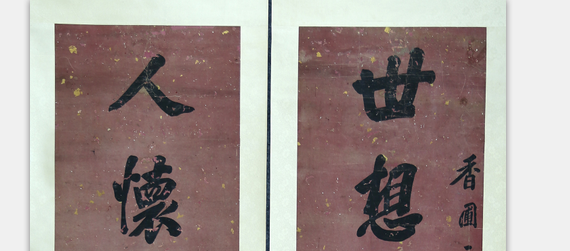 世想
香圃
人懷